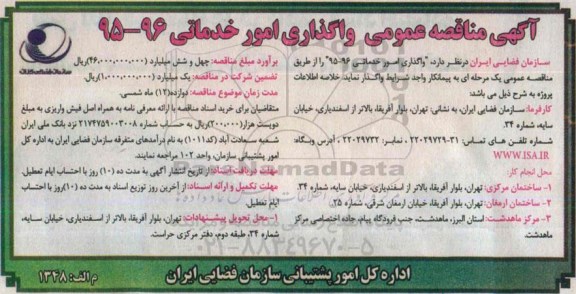 آگهی مناقصه عمومی واگذاری امور خدماتی ۹۶-۹۵
سازمان فضایی ایران درنظر دارد، "واگذاری امور خدماتی ۹۶-۹۵" را از طریق
مناقصه عمومی یک مرحله ای به پیمانکار واجد شرایط واگذار نماید. خلاصه اطلاعات
پروژه به شرح ذیل می باشد:
کارفرما: سازمان فضایی ایران، به نشانی: تهران، بلوار آفریقا، بالاتر از اسفندیاری، خیابان
سایه، شماره ۳۴.
شماره تلفن های تماس: ۳۱-۲۲۰۲۹۷۲۹ ، نمابر: ۲۲۰۲۹۷۳۲ ، آدرس وبگاه:
WWW.ISA.IR
محل انجام کار:
۱- ساختمان مرکزی: تهران، بلوار آفریقا، بالاتر از اسفندیاری، خیابان سایه، شماره ۳۴.
۲- ساختمان ارمغان: تهران، بلوار آفریقا، خیابان ارمغان شرقی، شماره ۲۵.
۳- مرکز ماهدشت: استان البرز، ماهدشت، جنب فرودگاه پیام، جاده اختصاصی مرکز
ماهدشت.
سازمان فضایی ایران
برآورد مبلغ مناقصه: چهل و شش میلیارد (۴۶,۰۰۰,۰۰۰,۰۰۰)ریال.
تضمین شرکت در مناقصه: یک میلیارد (۱,۰۰۰,۰۰۰,۰۰۰)ریال.
مدت زمان موضوع مناقصه: دوازده(۱۲) ماه شمسی.
متقاضیان برای خرید اسناد مناقصه با ارائه معرفی نامه به همراه اصل فیش واریزی به مبلغ
دویست هزار(۲۰۰,۰۰۰)ریال به حساب شماره ۲۱۷۴۷۵۹۰۰۳۰۰۸ نزد بانک ملی ایران
شعبه سعادت آباد (کد۱۰۱۱) به نام درآمدهای متفرقه سازمان فضایی ایران به اداره کل
امور پشتیبانی سازمان، واحد ۱۰۲ مراجعه نمایند.
مهلت دریافت اسناد: از تاریخ انتشار آگهی به مدت ده (۱۰) روز با احتساب ایام تعطیل.
مهلت تکمیل و ارائه اسناد: از آخرین روز توزیع اسناد به مدت ده (۱۰)روز با احتساب
ایام تعطیل.
محل تحویل پیشنهادات: تهران، بلوار آفریقا، بالاتر از اسفندیاری، خیابان سایه،
شماره ۳۴، طبقه دوم، دفتر مرکزی حراست.
ParsNamadData
۰۲۱-۸۸۳۴۹۶۷۰-۵
اداره کل امور پشتیبانی سازمان فضایی ایران
م الف: ۱۳۲۸